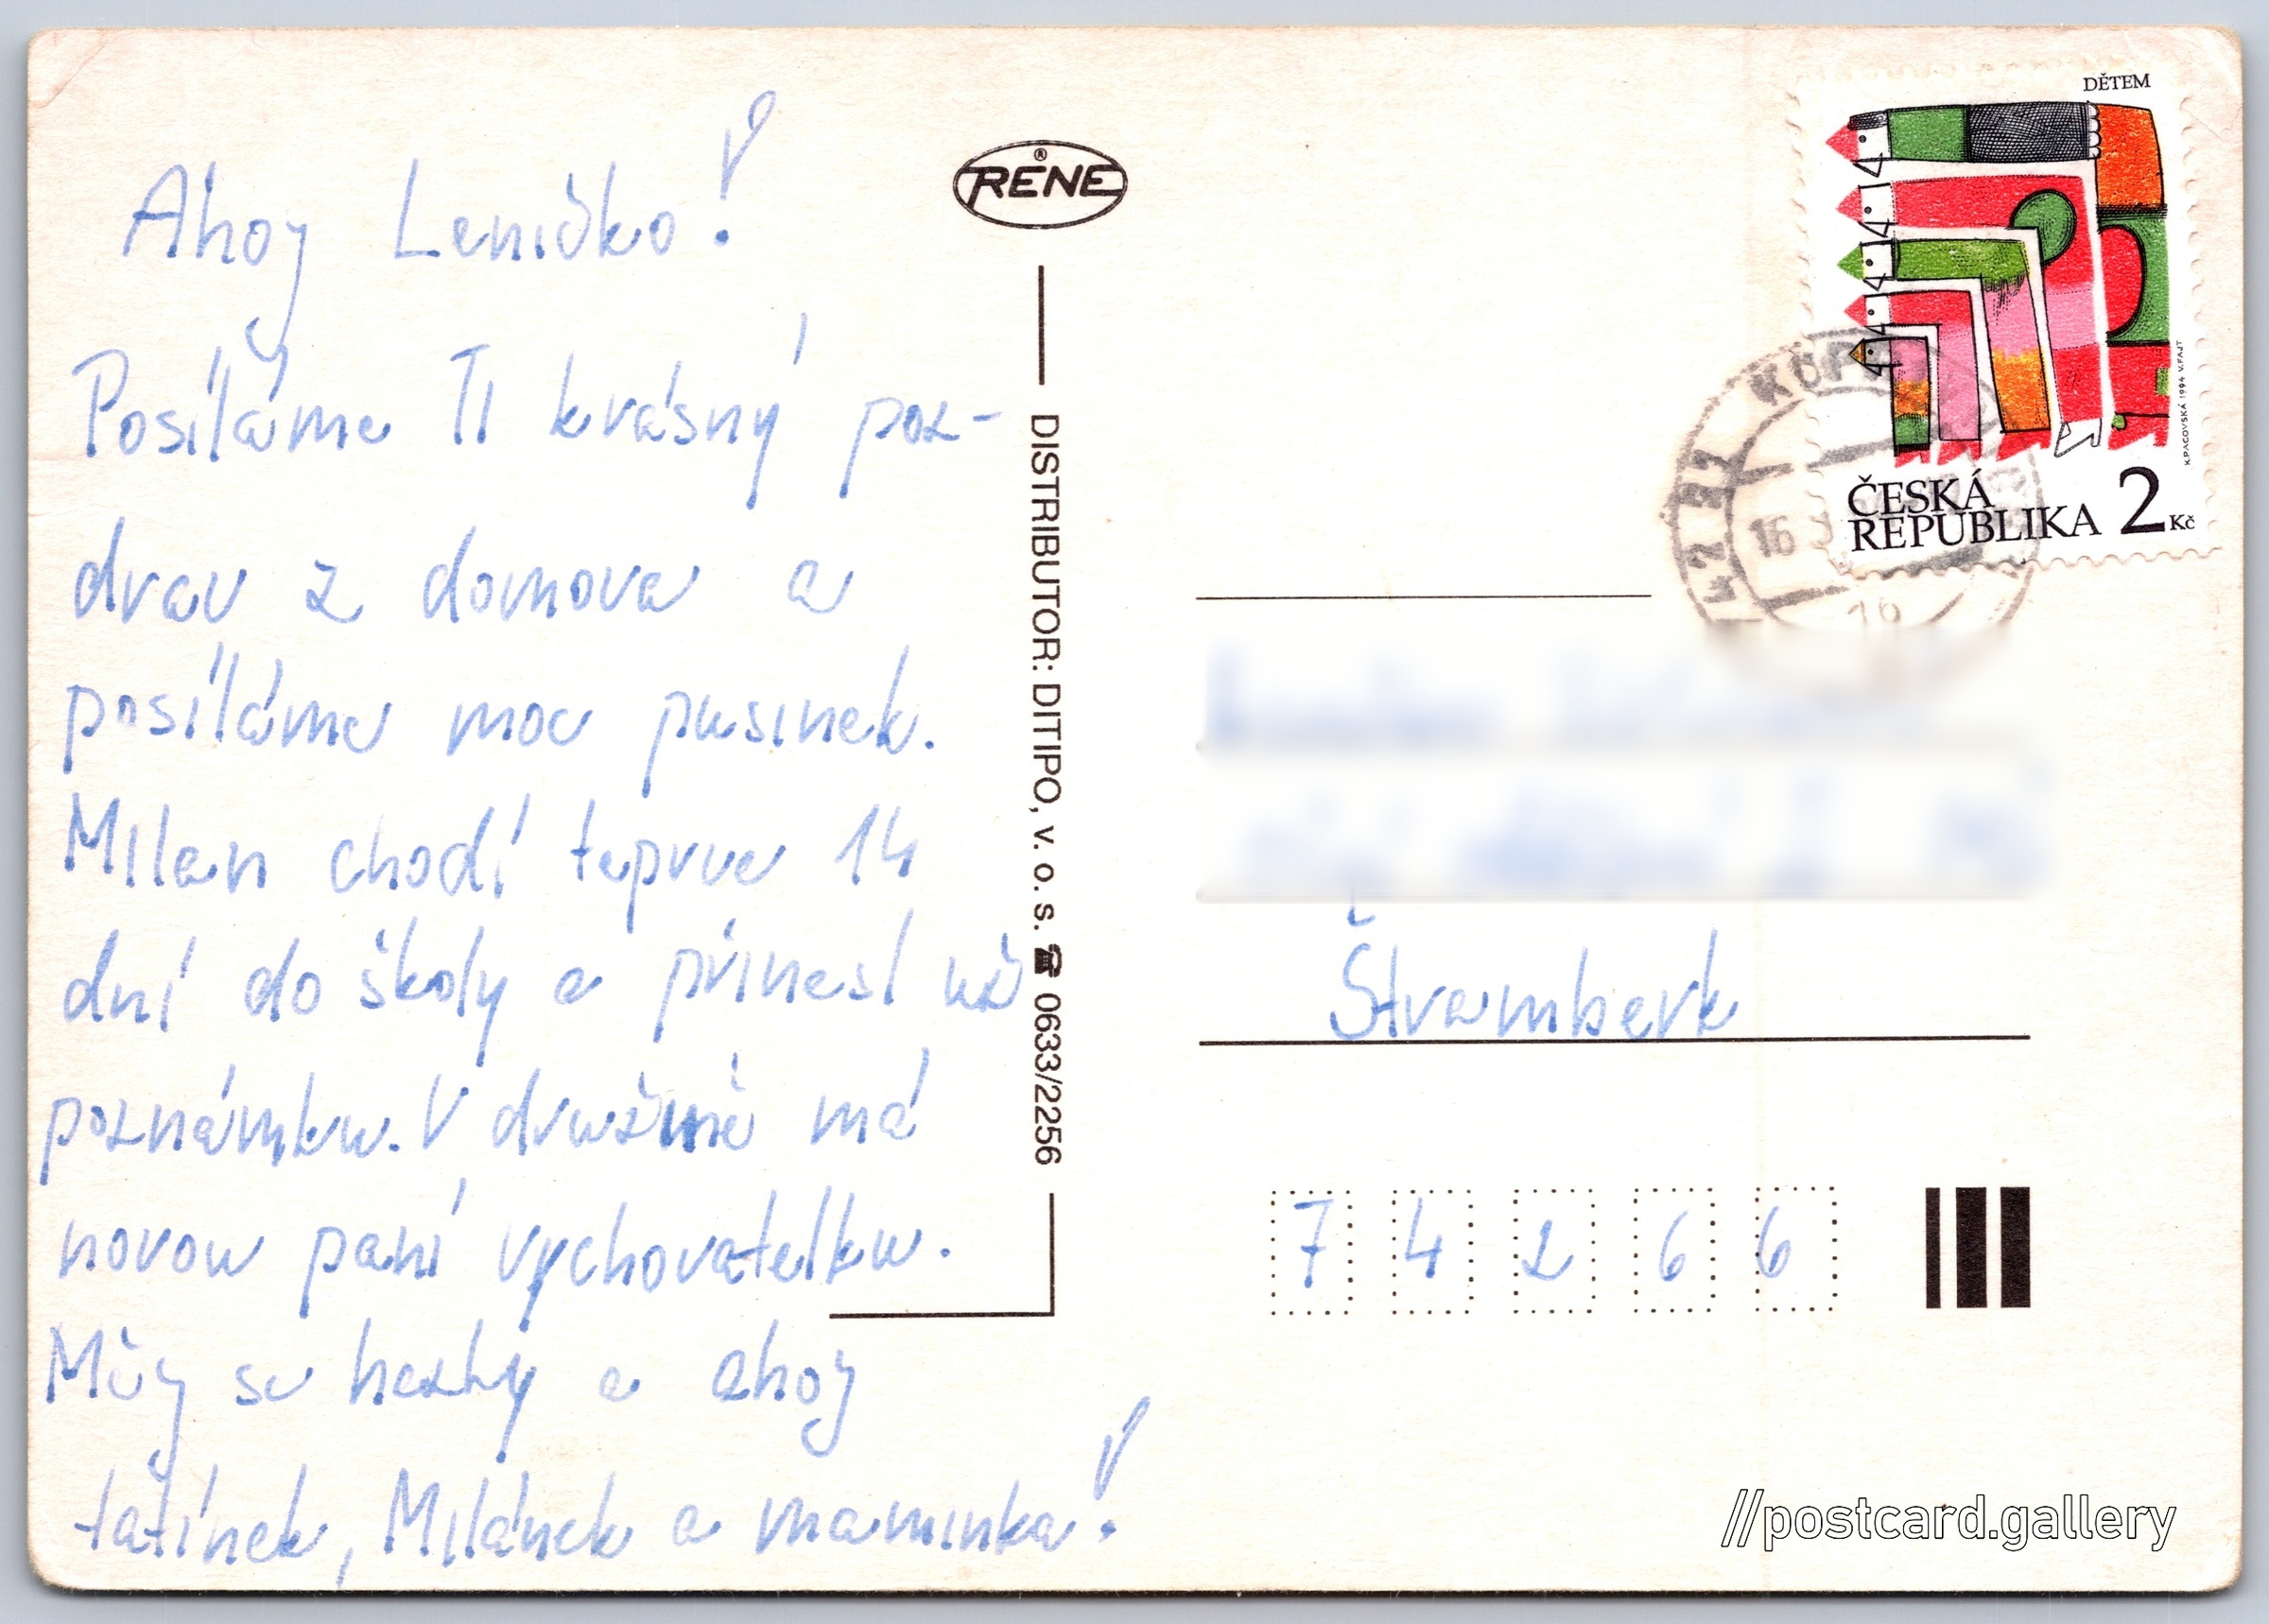 Ahoj Leničko!
Posíláme Ti krásný poz-
drav z domova a
posíláme moc pusinek.
Milan chodí teprve 14
dní do školy a přinesl už
poznámku. V družině má
novou paní vychovatelku.
Měj se hezky a ahoj
tatínek, Milánek a maminka!
RENE
®
DISTRIBUTOR: DITIPO, v. o. s. ☎ 0633/2256
DĚTEM
K.PACOVSKÁ 1994 V.FAJT
ČESKÁ
REPUBLIKA 2 Kč
742 21
16
Štramberk
7 4 2 6 6
//postcard.gallery